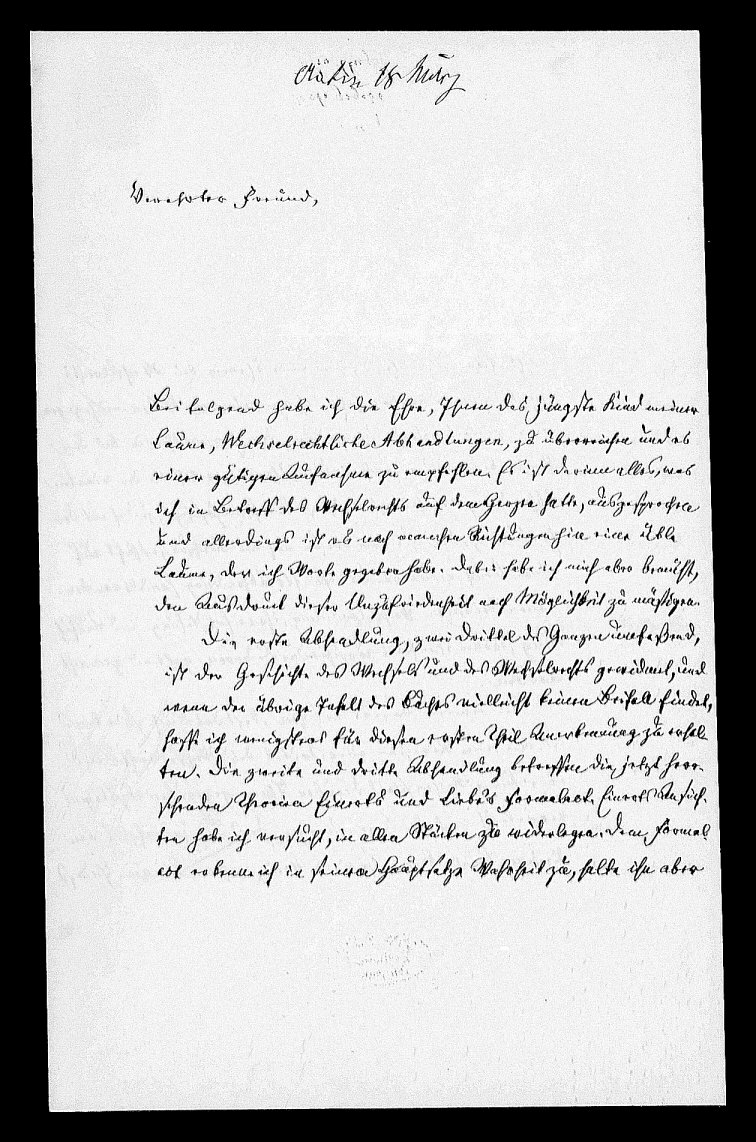 18 März
Verehrter Freund,
Beifolgend habe ich die Ehre, Ihnen das jüngste Kind meiner
Laune, Wechselrechtliche Abhandlungen, zu überreichen und es
einer gütigen Aufnahme zu empfehlen. Es ist darin alles, was
ich in Betreff des Wechselrechts auf dem Herzen hatte, ausgesprochen
und allerdings ist es nach manchen Richtungen hin eine üble
Laune, der ich Worte gegeben habe. Dabei habe ich mich aber bemüht,
den Ausdruck dieser Unzufriedenheit nach Möglichkeit zu mäßigen.
Die erste Abhandlung, zwei Drittel des Ganzen umfaßend,
ist der Geschichte des Wechsels und des Wechselrechts gewidmet, und
wenn der übrige Inhalt des Buches vielleicht keinen Beifall findet,
hoffe ich wenigstens für diesen ersten Theil Anerkennung zu erhal-
ten. Die zweite und dritte Abhandlung betreffen die jetzt herr-
schenden Theorien Einerts und Liebe's Formalact. Einerts Ansich-
ten habe ich versucht, in allen Stücken zu widerlegen. Dem Formal-
act erkenne ich in seinem Hauptsatze Wahrheit zu, halte ihn aber